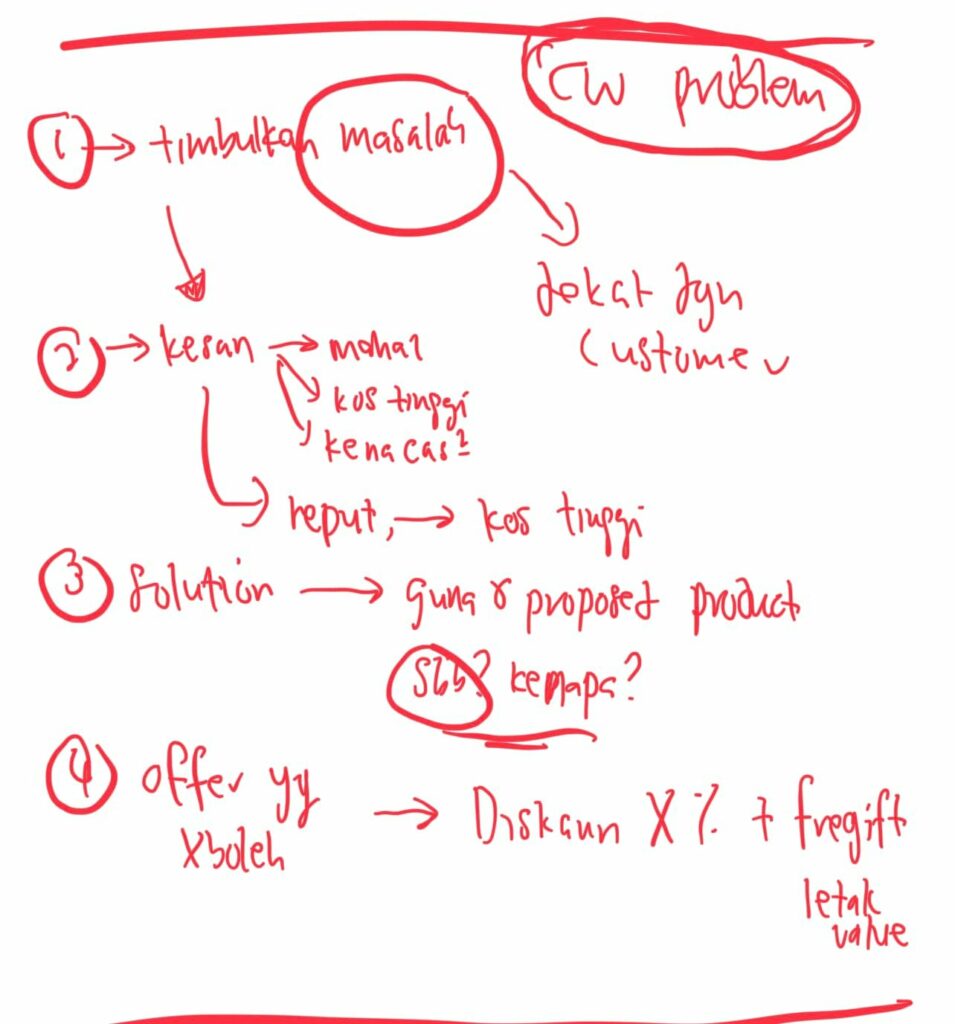 CW problem
1 → timbulkan masalah
dekat dgn
customer
2 → kesan → mahal
kos tinggi
kena cas²
reput, → kos tinggi
3 Solution → guna & proposed product
Sbb? kenapa?
4 offer yg → Diskaun X % + fregift
Xboleh
letak
value